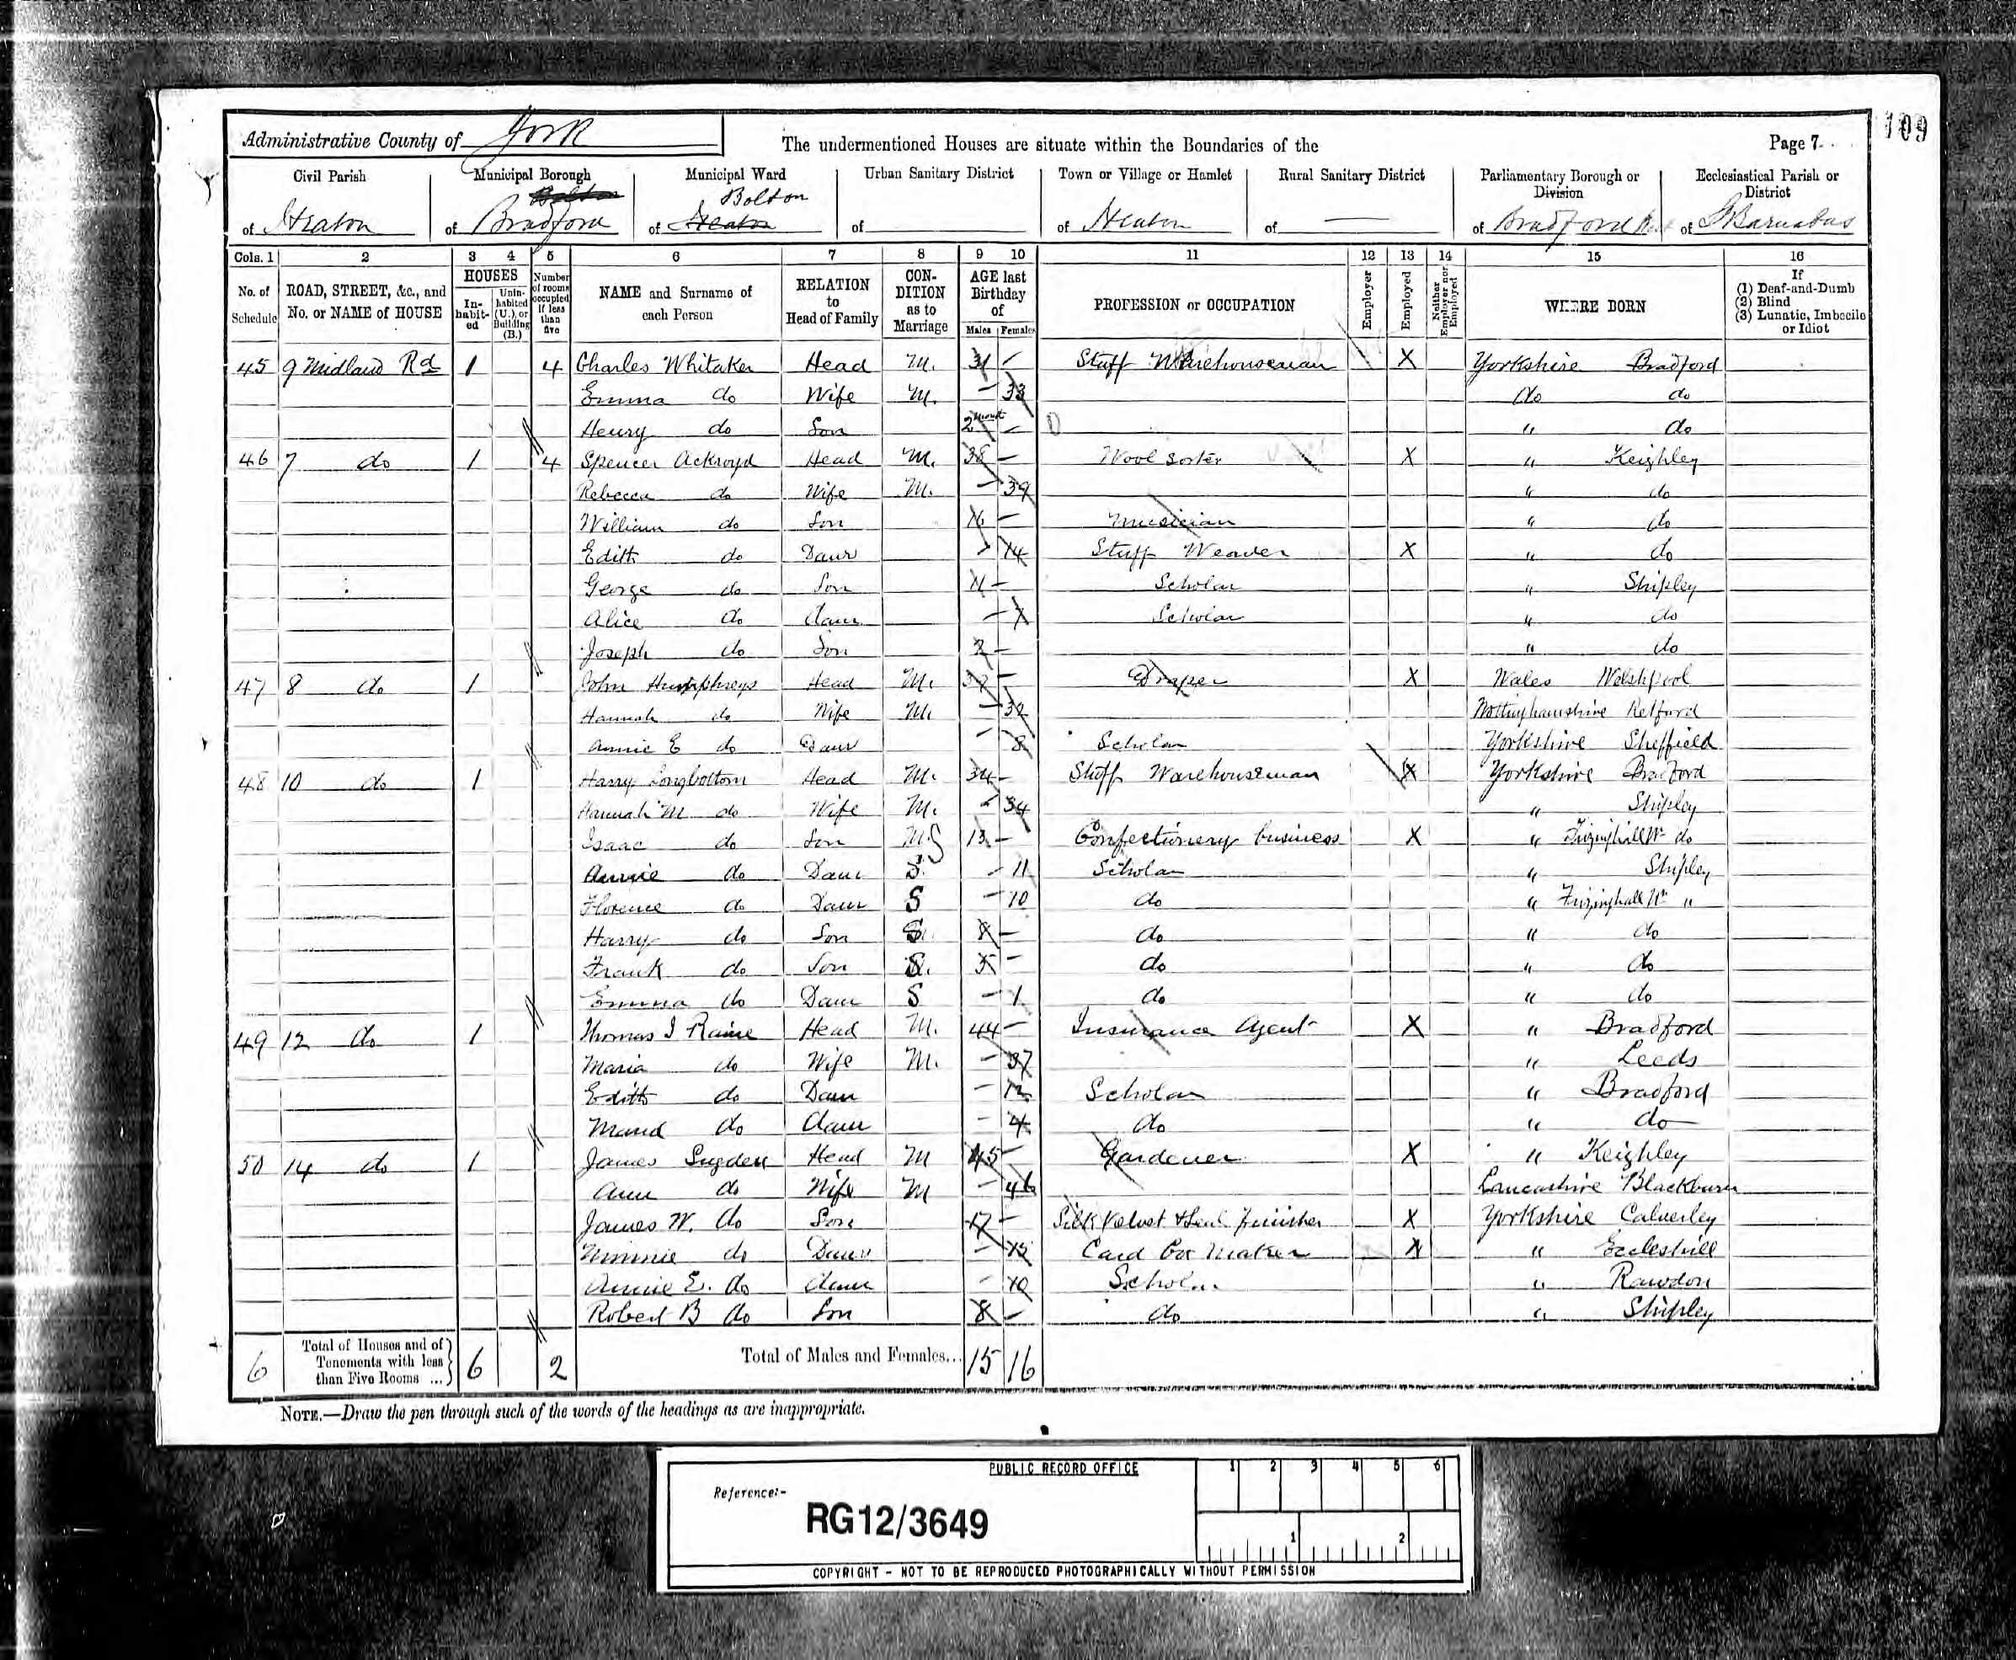 109
Administrative County of York The undermentioned Houses are situate within the Boundaries of the Page 7
Civil Parish Municipal Borough Municipal Ward Urban Sanitary District Town or Village or Hamlet Rural Sanitary District Parliamentary Borough or Division Ecclesiastical Parish or District
Bolton Bolton
of Heaton of Bradford of Heaton of of Heaton of — of Bradford of St Barnabas
Cols. 1 2 3 4 5 6 7 8 9 10 11 12 13 14 15 16
No. of Schedule ROAD, STREET, &c., and No. or NAME of HOUSE HOUSES Inhabited Uninhabited (U.), or Building (B.) Number of rooms occupied if less than five NAME and Surname of each Person RELATION to Head of Family CONDITION as to Marriage AGE last Birthday of Males Females PROFESSION or OCCUPATION Employer Employed Neither Employer nor Employed WHERE BORN If (1) Deaf-and-Dumb (2) Blind (3) Lunatic, Imbecile or Idiot
45 9 Midland Rd 1 4 Charles Whitaker Head M. 31 – Stuff Warehouseman X Yorkshire Bradford
Emma do Wife M. – 33 do do
Henry do Son 2 Month – " do
46 7 do 1 4 Spencer Ackroyd Head M. 38 – Wool Sorter X " Keighley
Rebecca do Wife M. – 39 " do
William do Son 16 – Musician " do
Edith do Daur – 14 Stuff Weaver X " do
George do Son 11 – Scholar " Shipley
Alice do daur – Scholar " do
Joseph do Son 2 – " do
47 8 do 1 John Humphreys Head M. – Draper X Wales Welshpool
Hannah do Wife M. – 32 Nottinghamshire Retford
Annie E do Daur – 8 Scholar Yorkshire Sheffield
48 10 do 1 Harry Longbottom Head M. 34 – Stuff Warehouseman X Yorkshire Bradford
Hannah M do Wife M. – 34 " Shipley
Isaac do Son S 13 – Confectionery business X " Frizinghall Nr do
Annie do Daur S – 11 Scholar " Shipley
Florence do Daur S – 10 do " Frizinghall Nr "
Harry do Son S 8 – do " do
Frank do Son S. 5 – do " do
Emma do Daur S – 1 do " do
49 12 do 1 Thomas J Raine Head M. 44 – Insurance Agent X " Bradford
Maria do Wife M. – 37 " Leeds
Edith do Daur – 12 Scholar " Bradford
Maud do daur – 4 do " do
50 14 do 1 James Sugden Head M 45 – Gardener X " Keighley
Ann do Wife M – 46 Lancashire Blackburn
James W. do Son 17 – Silk Velvet & Seal finisher X Yorkshire Calverley
Minnie do Daur – 15 Card Box Maker X " Eccleshill
Annie E. do daur – 10 Scholar " Rawdon
Robert B do Son 8 – do " Shipley
6 Total of Houses and of Tenements with less than Five Rooms ... 6 2 Total of Males and Females... 15 16
NOTE.—Draw the pen through such of the words of the headings as are inappropriate.
PUBLIC RECORD OFFICE 1 2 3 4 5 6
Reference:-
RG12/3649
1 2
COPYRIGHT - NOT TO BE REPRODUCED PHOTOGRAPHICALLY WITHOUT PERMISSION